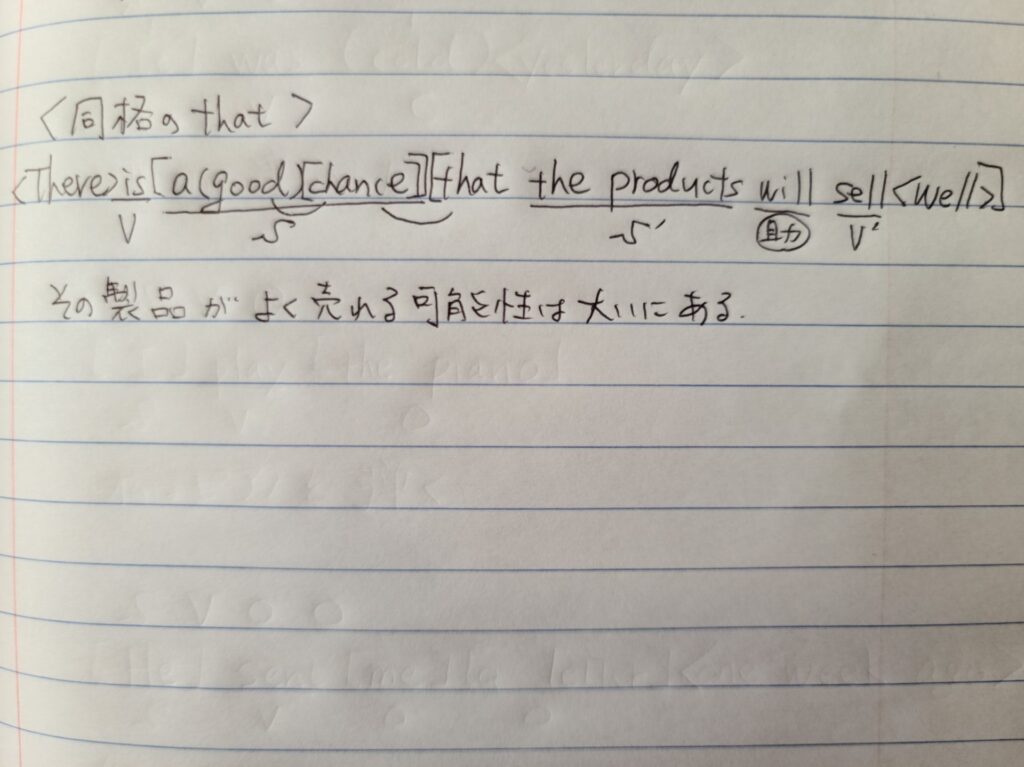 <同格の that>
<There>is[a(good)[chance]][that the products will sell<well>]
V S S' 助 V'
その製品がよく売れる可能性は大いにある.